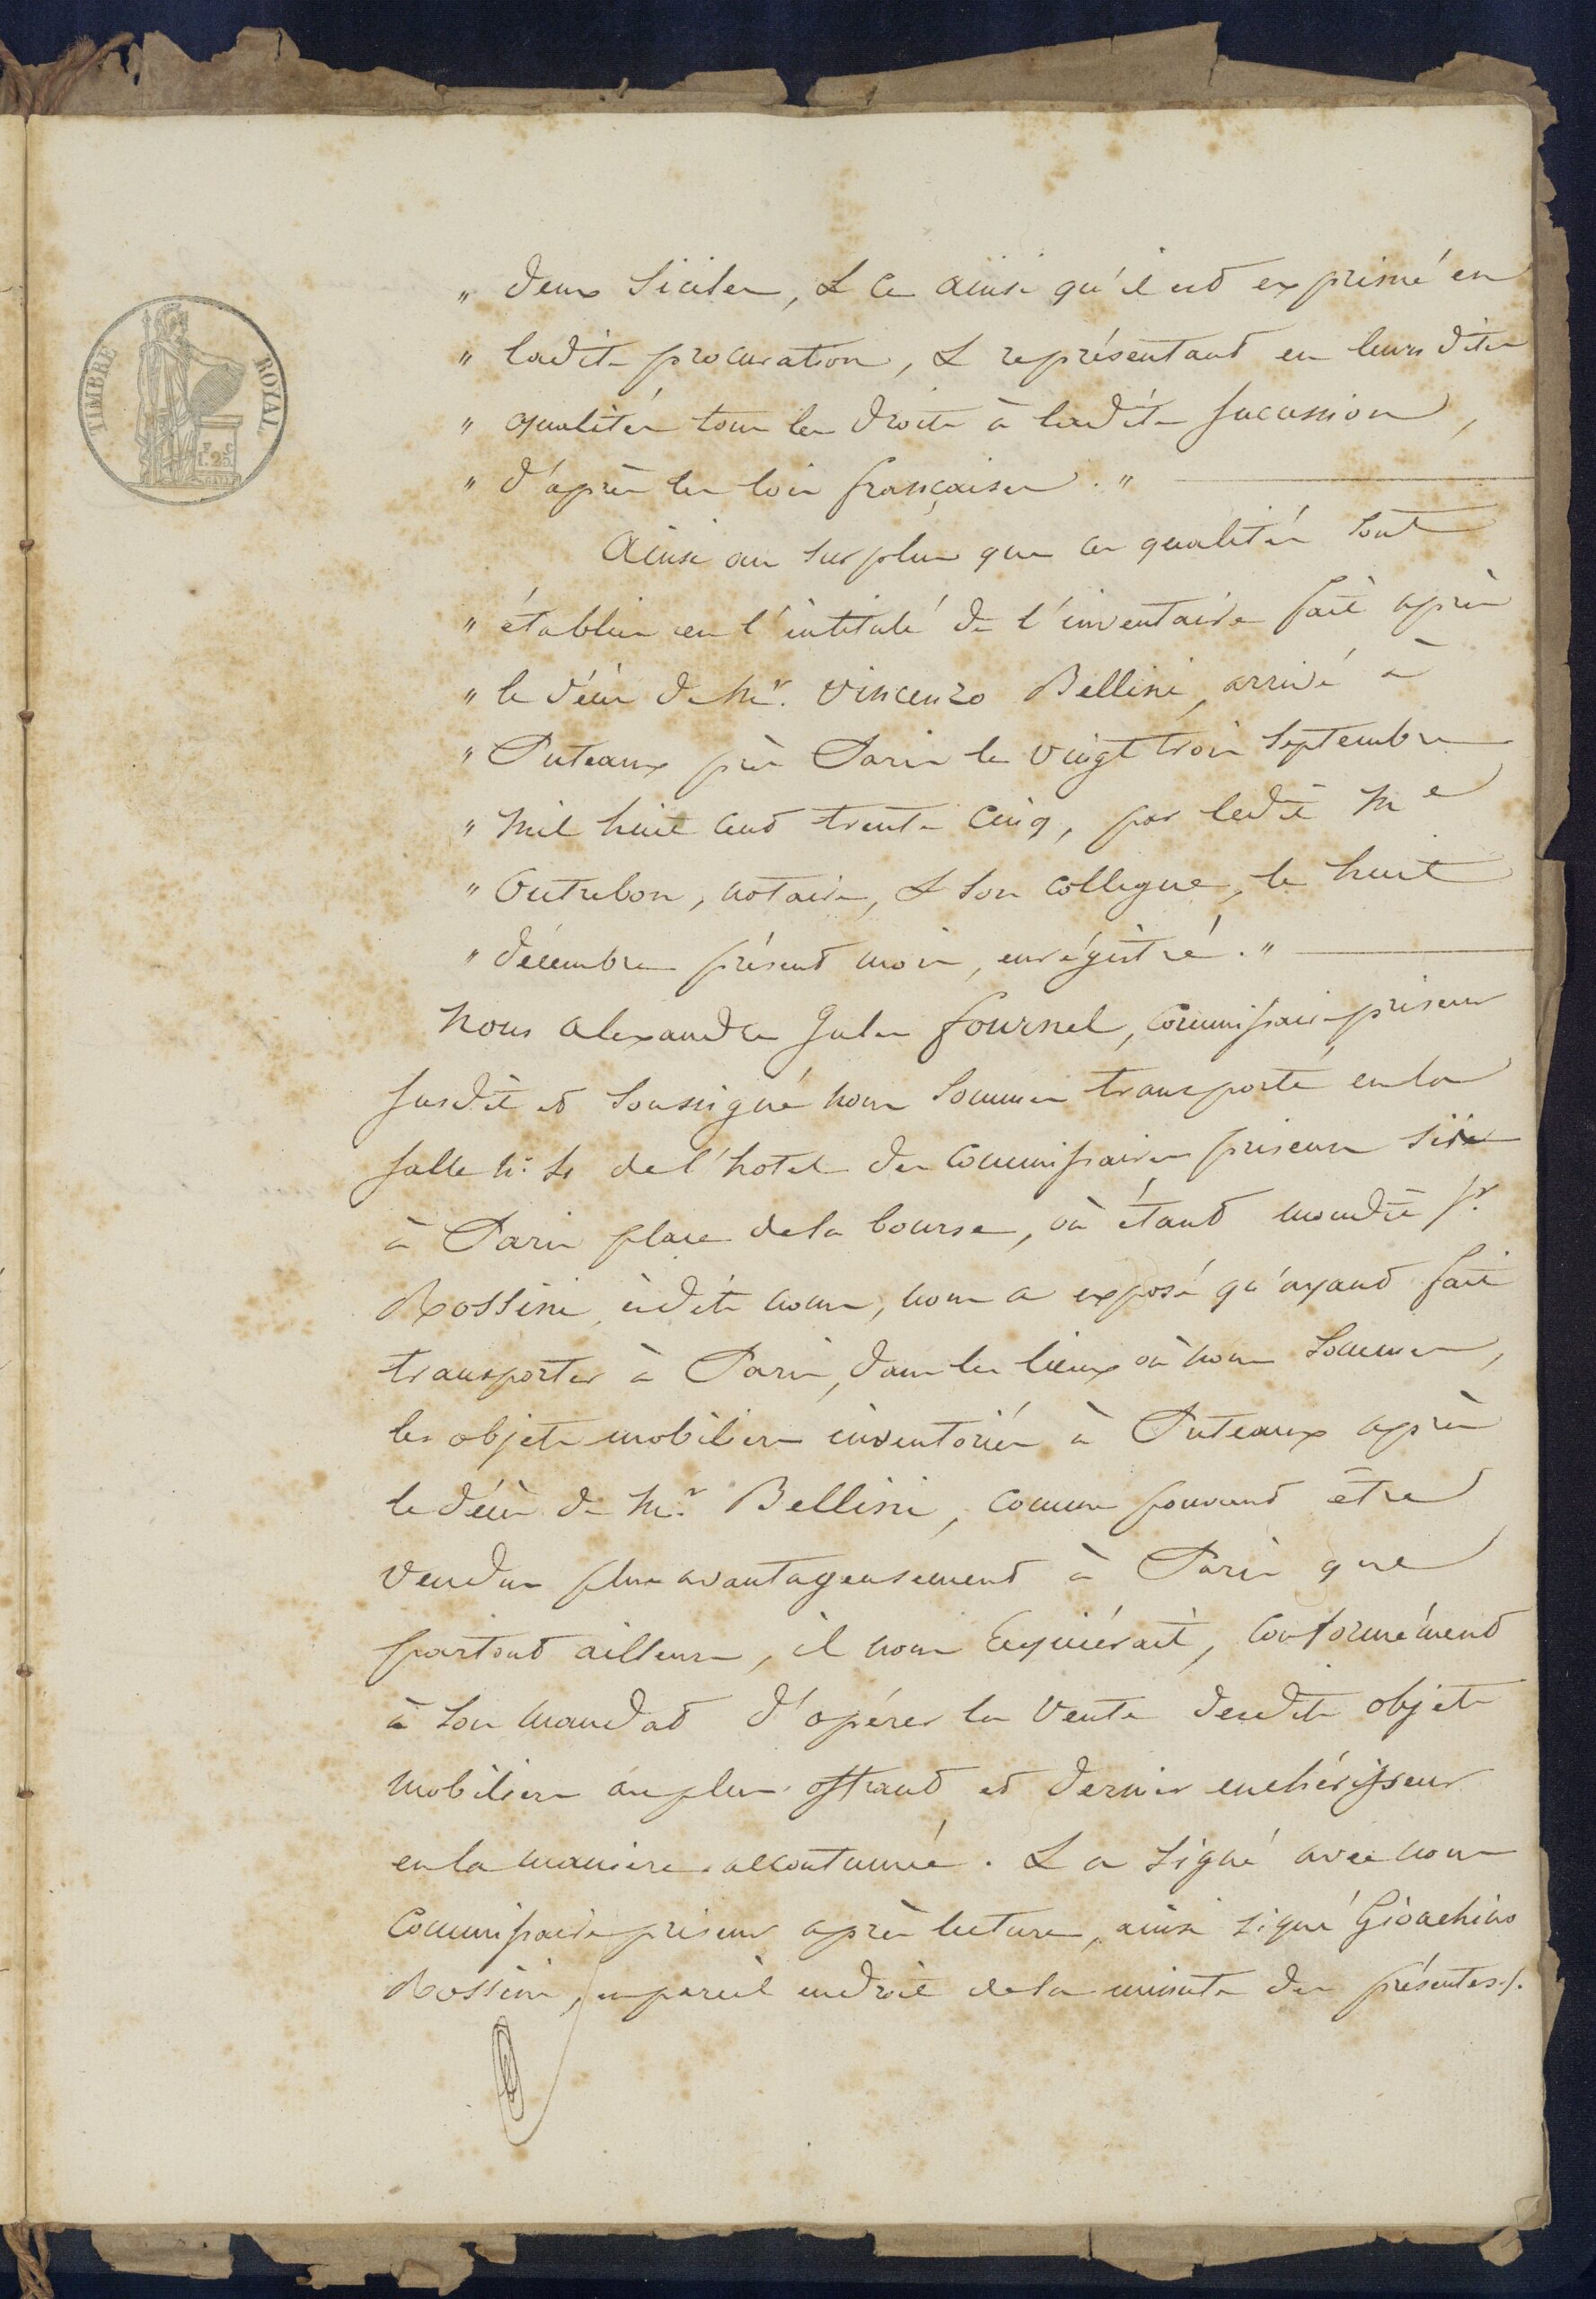 TIMBRE ROYAL
1 f. 25
" deux Siciles, & ce ainsi qu'il est exprimé en
" ladite procuration, & représentant en leurs dites
" qualités tous les droits à ladite succession,
" d'après les lois françaises. "
Ainsi au surplus que ces qualités sont
" établies en l'intitulé de l'inventaire fait après
" le décès de Mr. Vincenzo Bellini, arrivé à
" Puteaux près Paris le vingt trois Septembre
" mil huit cent trente cinq, par ledit Me
" Outrebon, notaire, & son collegue, le huit
" décembre présent mois, enrégistré. "
Nous Alexandre Jules fournel, commissaire priseur
susdit et soussigné nous sommes transporté en la
salle No. 4 de l'hotel des commissaires priseurs sise
à Paris place de la bourse, où étant mondit Sr.
Rossini, èsdits noms, nous a exposé qu'ayant fait
transporter à Paris, dans les lieux où nous sommes,
les objets mobiliers inventoriés à Puteaux après
le décès de Mr. Bellini, comme pouvant être
vendus plus avantageusement à Paris que
partout ailleurs, il nous requiérait, conformément
à son mandat d'opérer la vente desdits objets
mobiliers au plus offrant et dernier enchérisseur
en la maniere accoutumée. & a signé avec nous
commissaire priseur après lecture, ainsi signé Gioachino
Rossini, en pareil endroit de la minute des présentes./.